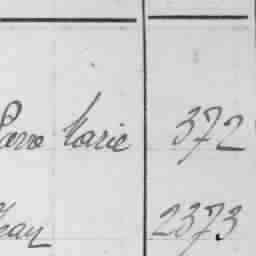 Marie 372
Jean 2373